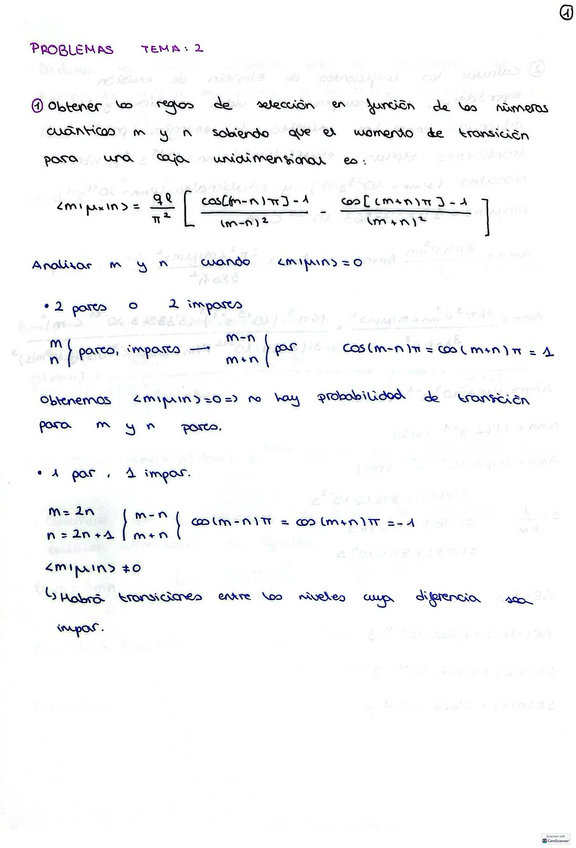 1
PROBLEMAS TEMA: 2
① Obtener las reglas de selección en función de los números
cuánticos m y n sabiendo que el momento de transición
para una caja unidimensional es:
<m|μx|n> = qℓ/π² [ (cos[(m-n)π]-1)/(m-n)² - (cos[(m+n)π]-1)/(m+n)² ]
Analizar m y n cuando <m|μ|n> = 0
• 2 pares o 2 impares
m n } pares, impares → m-n m+n } par cos(m-n)π = cos(m+n)π = 1
Obtenemos <m|μ|n> = 0 => no hay probabilidad de transición
para m y n pares.
• 1 par, 1 impar.
m = 2n n = 2n+1 { m-n m+n { cos(m-n)π = cos(m+n)π = -1
<m|μ|n> ≠ 0
↳ Habrá transiciones entre los niveles cuya diferencia sea
impar.
Scanned with
CamScanner